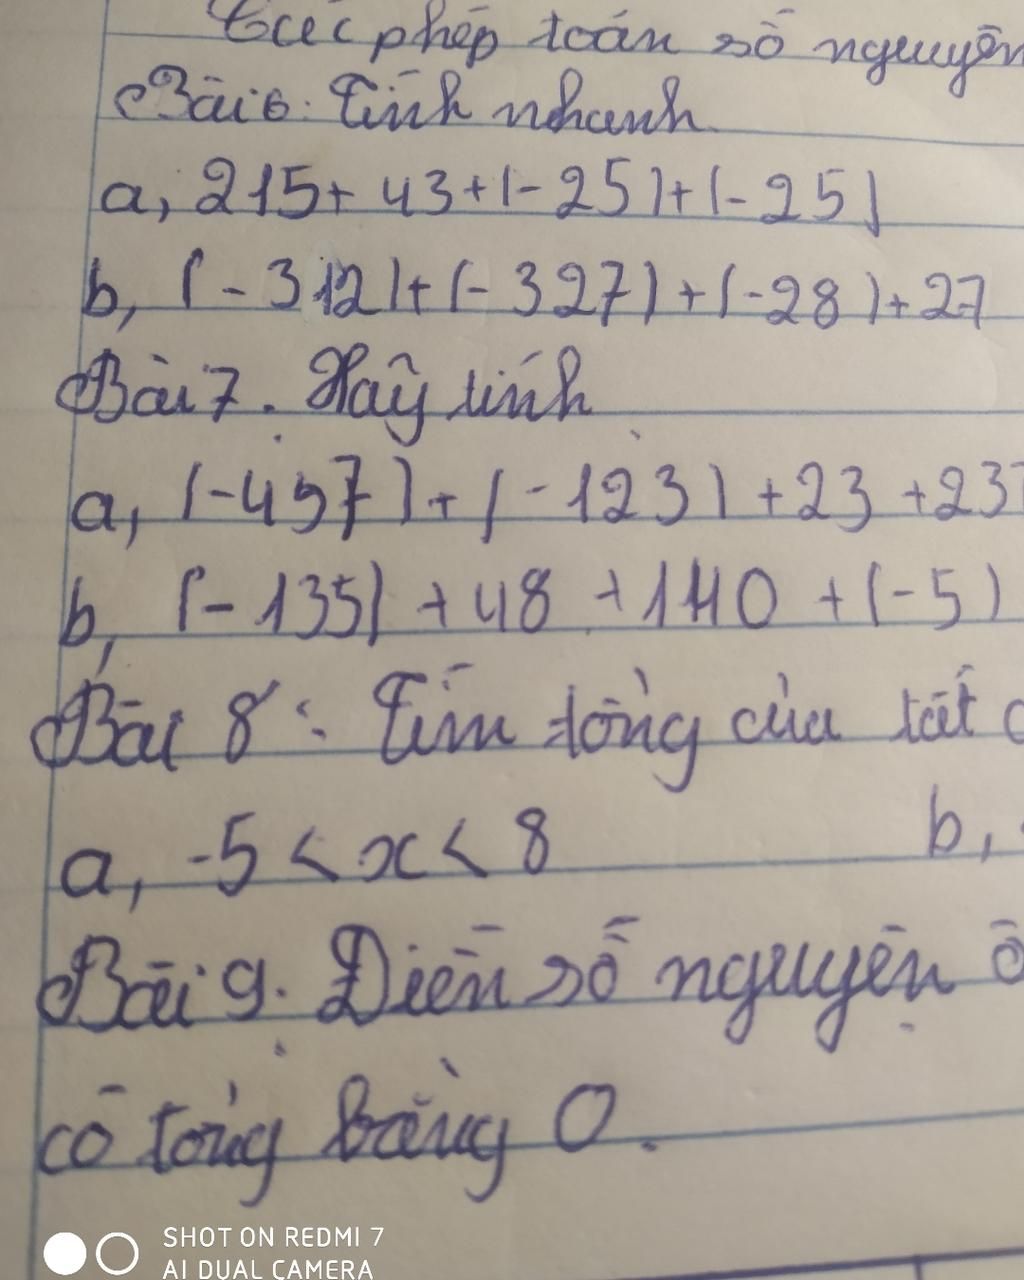 Các phép toán số nguyên
Bài 6: Tính nhanh
a, 215 + 43 + (-25) + (-25)
b, (-312) + (-327) + (-28) + 27
Bài 7. Hãy tính
a, (-457) + (-123) + 23 + 237
b, (-135) + 48 + 140 + (-5)
Bài 8: Tìm tổng của tất
a, -5 < x < 8 b,
Bài 9. Điền số nguyên
có tổng bằng 0.
SHOT ON REDMI 7
AI DUAL CAMERA